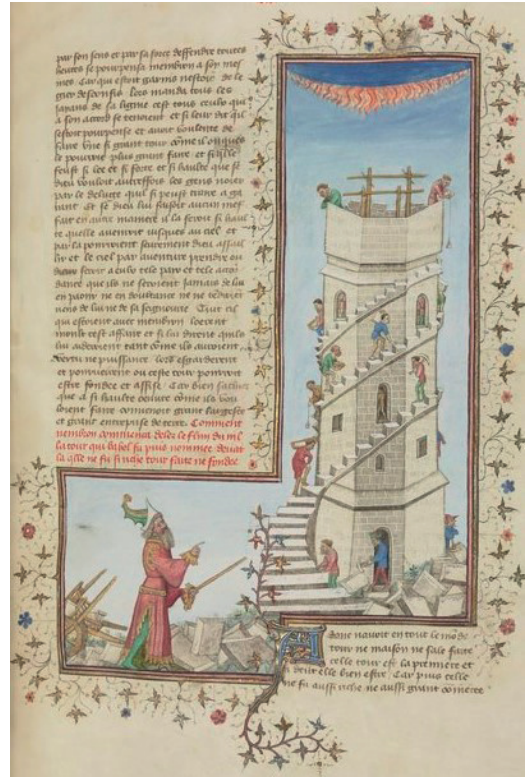 par son sens et par sa force deffendre toutes
heures se pourpensa membron a soy mes
mes. Car qui estoit garnis nestoit de le
gier desconfis lors manda tous les
jayans de sa ligne cest tous ceulx qui
a son accord se tenoient et si leur dit qil
sestoit pourpense et avoit voulente de
faire une si grant tour come il onques
le pourroit plus grant faire et si elle
feust si lee et si forte et si haulte que se
dieu vouloit autreffois les gens noier
par le deluge que il se peust traire a ga
rant Et se dieu lui faisoit aucun mef
fait en autre maniere il la feroit si haul
te quelle avenroit jusques au ciel et
par la pourroient seurement dieu assail
lir et le ciel par aventure prendre ou
dieux feroit a eulx tele paix et tele acor
dance que ils ne seroient jamais de lui
en paour ne en doubtance ne ne
riens de lui ne de sa seigneurie Tout cil
qui estoient avec membron loerent
moult cest affaire et si lui dirent quils
lui aideroient tant come ils auroient
vertu ne puissance lors esgarderent
et pourvurent ou ceste tour pourroit
estre fondee et assise Car bien sachiez
que a si haulte oeuvre come ils vou
loient faire convenoit grant largesse
et grant entreprise de terre. Comment
nembron commenca deles le flun du nil
la tour qui babel fu puis nommee devant
la qlle ne fu si riche tour faite ne fondee
Adonc navoit en tout le mode
tour ne maison ne sale faite
celle tour est la premiere et
doit elle bien estre Car puis celle
ne fu aussi riche ne aussi grant comencee